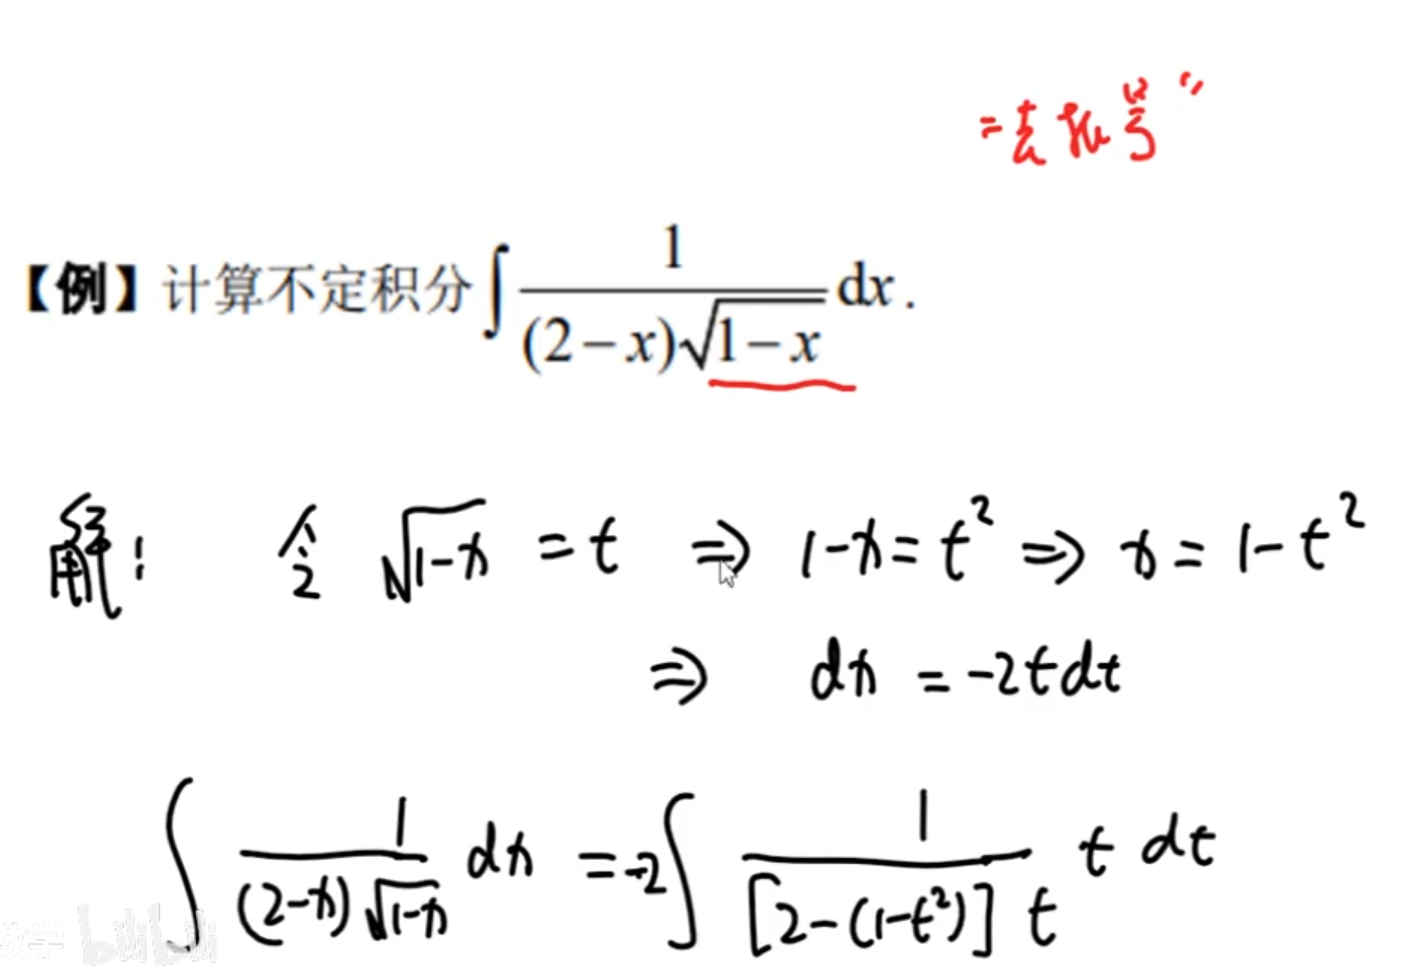 "去根号"
【例】计算不定积分∫ 1/((2−x)√(1−x)) dx.
解: 令 √(1-x) = t ⇒ 1-x = t² ⇒ x = 1-t²
⇒ dx = -2tdt
∫ 1/((2-x)√(1-x)) dx = -2∫ 1/([2-(1-t²)] t) t dt
数学 bilibili